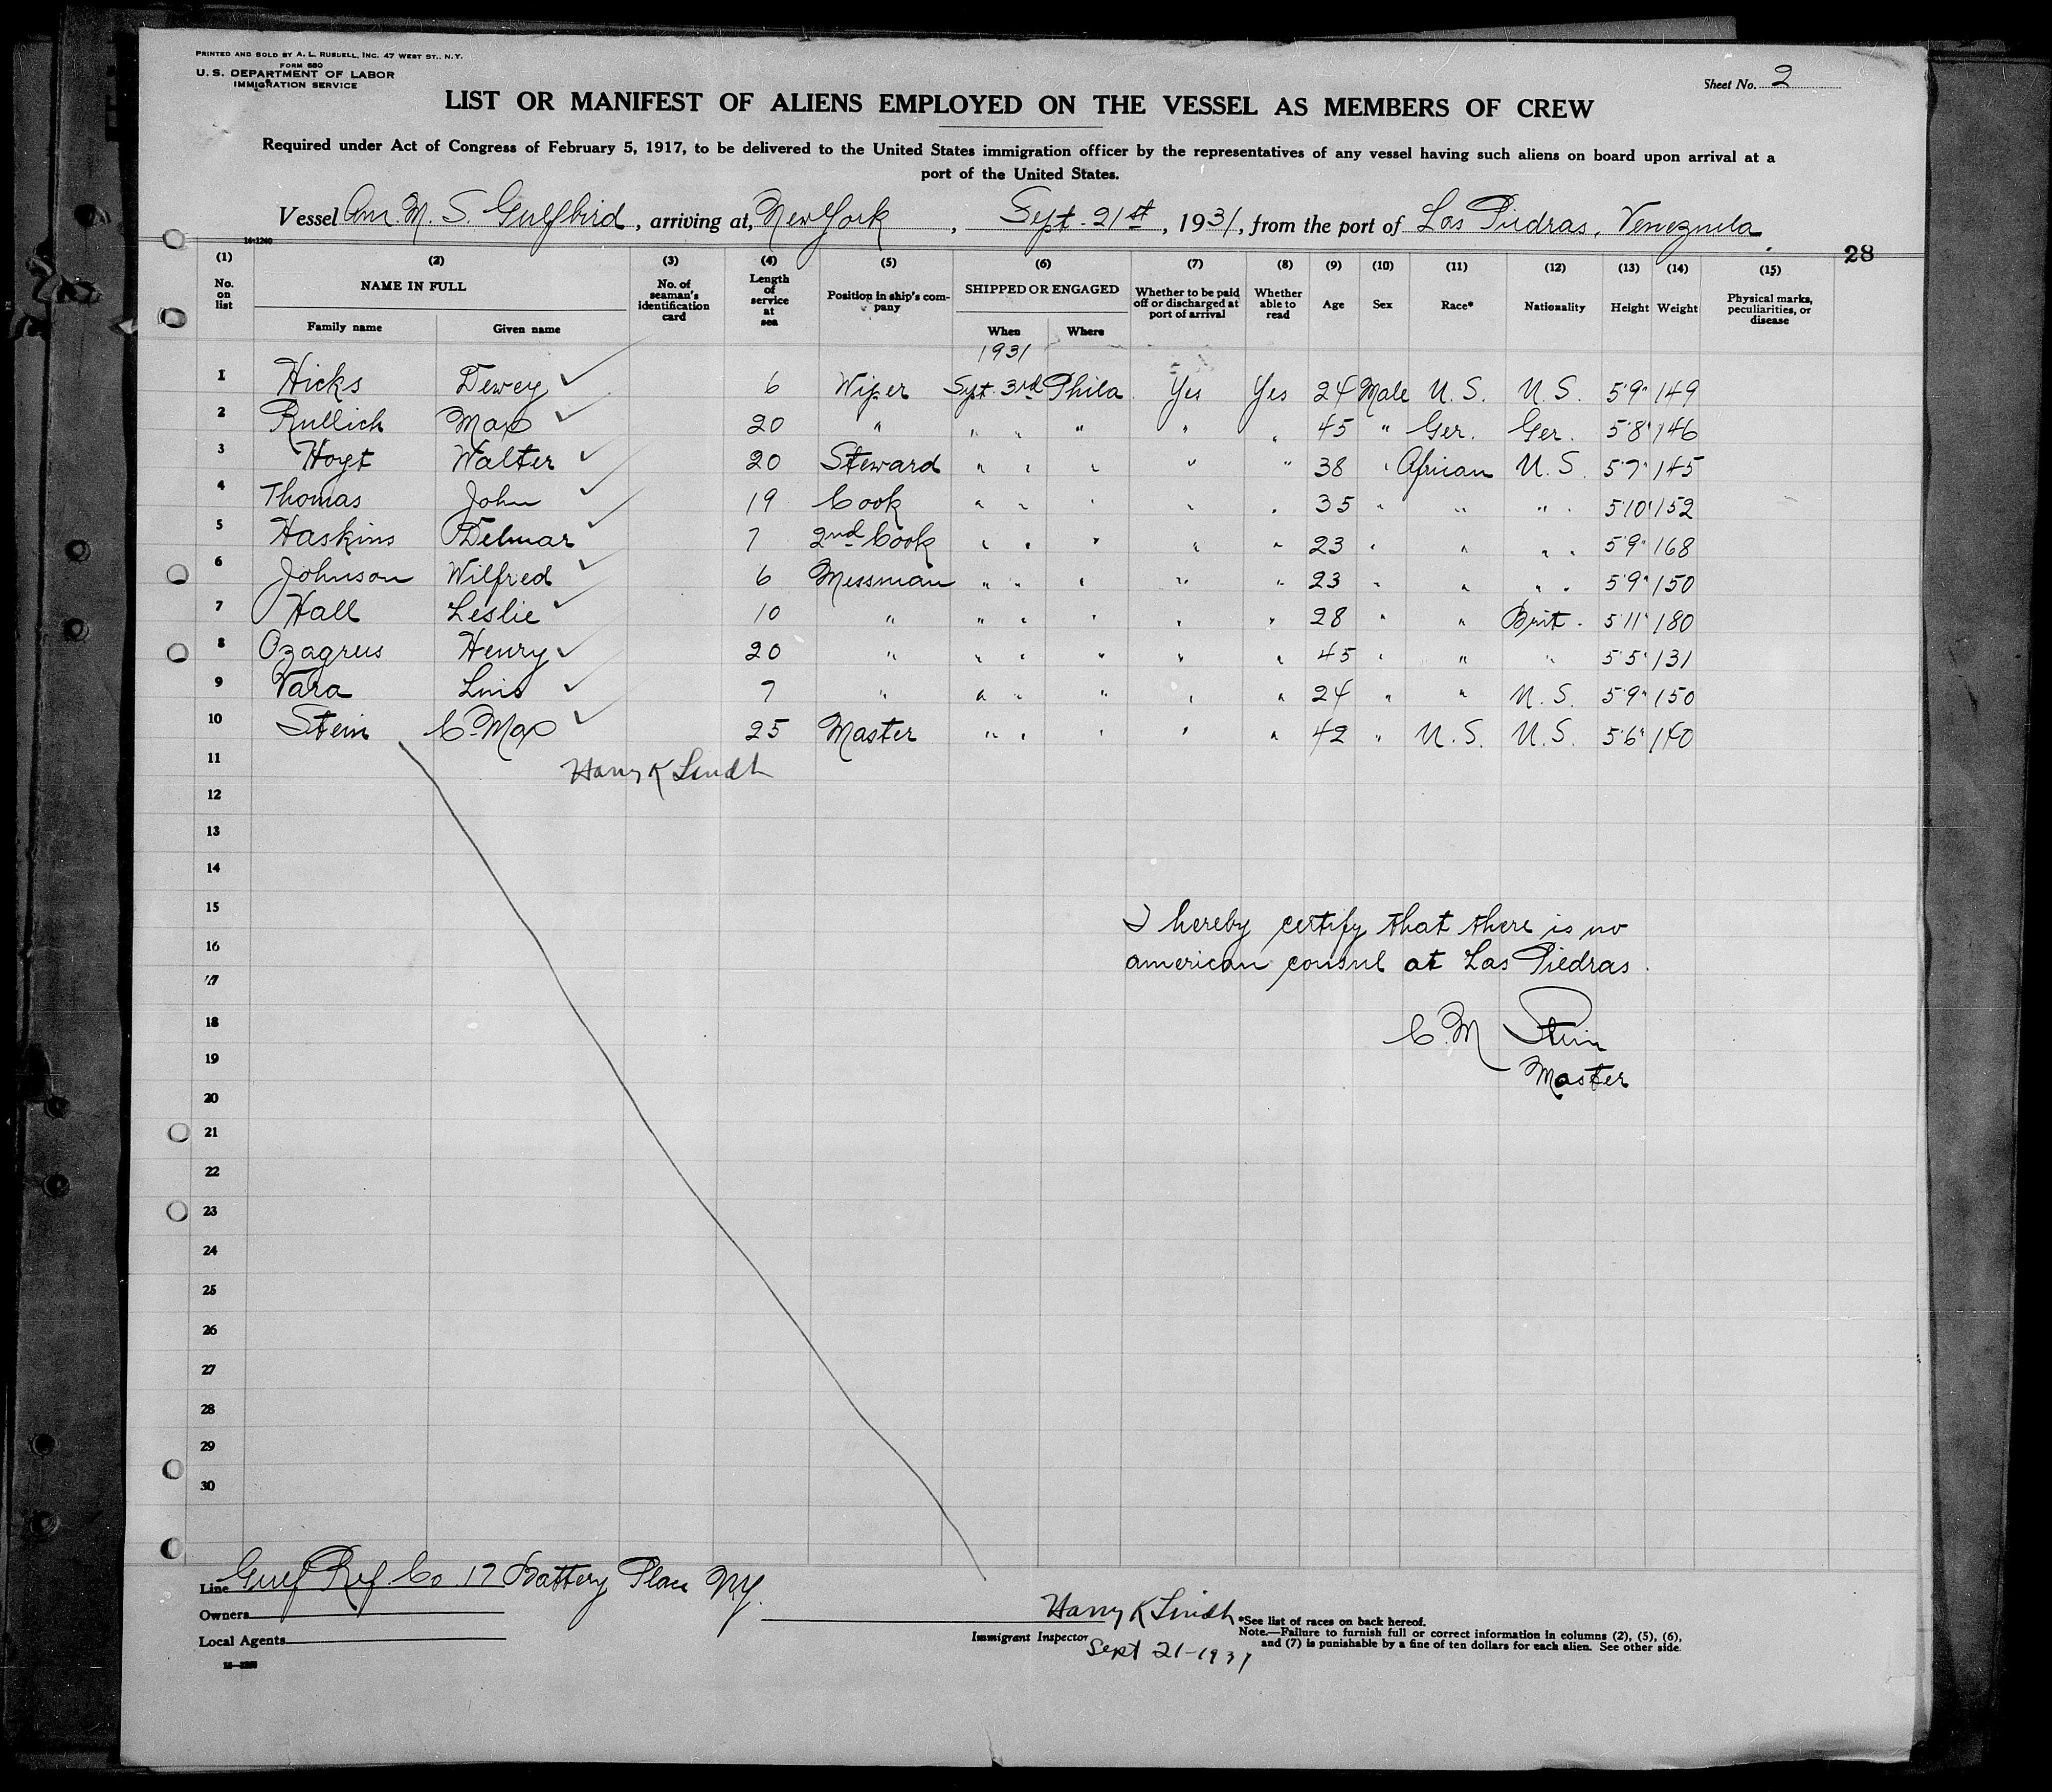 PRINTED AND SOLD BY A. L. RUSSELL, INC. 47 WEST ST., N.Y.
FORM 680
U. S. DEPARTMENT OF LABOR
IMMIGRATION SERVICE
Sheet No. 2
LIST OR MANIFEST OF ALIENS EMPLOYED ON THE VESSEL AS MEMBERS OF CREW
Required under Act of Congress of February 5, 1917, to be delivered to the United States immigration officer by the representatives of any vessel having such aliens on board upon arrival at a
port of the United States.
Vessel Am. M. S. Gulfbird, arriving at, New York, Sept. 21st, 1931, from the port of Las Piedras, Venezuela
14-1240
28
(1) (2) (3) (4) (5) (6) (7) (8) (9) (10) (11) (12) (13) (14) (15)
No. on list NAME IN FULL No. of seaman's identification card Length of service at sea Position in ship's company SHIPPED OR ENGAGED Whether to be paid off or discharged at port of arrival Whether able to read Age Sex Race* Nationality Height Weight Physical marks, peculiarities, or disease
Family name Given name When Where
1931
1 Hicks Dewey ✓ 6 Wiper Sept. 3rd Phila. Yes Yes 24 Male U. S. U. S. 5'9" 149
2 Rullich Max ✓ 20 " " " " " " 45 " Ger. Ger. 5'8" 146
3 Hoyt Walter ✓ 20 Steward " " " " " 38 " African U. S. 5'7" 145
4 Thomas John ✓ 19 Cook " " " " " 35 " " " " 5'10" 152
5 Haskins Delmar ✓ 7 2nd Cook " " " " " 23 " " " " 5'9" 168
6 Johnson Wilfred ✓ 6 Messman " " " " " 23 " " " " 5'9" 150
7 Hall Leslie ✓ 10 " " " " " " 28 " " Brit. 5'11" 180
8 Ozagrus Henry ✓ 20 " " " " " " 45 " " " 5'5" 131
9 Vara Luis ✓ 7 " " " " " " 24 " " U. S. 5'9" 150
10 Stein C. Max ✓ 25 Master " " " " " 42 " U. S. U. S. 5'6" 140
11 Harry K Lindh
12
13
14
15 I hereby certify that there is no
16 american consul at Las Piedras.
17
18 C. M Stein
19 Master
20
21
22
23
24
25
26
27
28
29
30
Line Gulf Ref. Co. 17 Battery Place N.Y.
Owners
Local Agents
Harry K Lindh
Immigrant Inspector
Sept 21-1931
*See list of races on back hereof.
Note.—Failure to furnish full or correct information in columns (2), (5), (6),
and (7) is punishable by a fine of ten dollars for each alien. See other side.